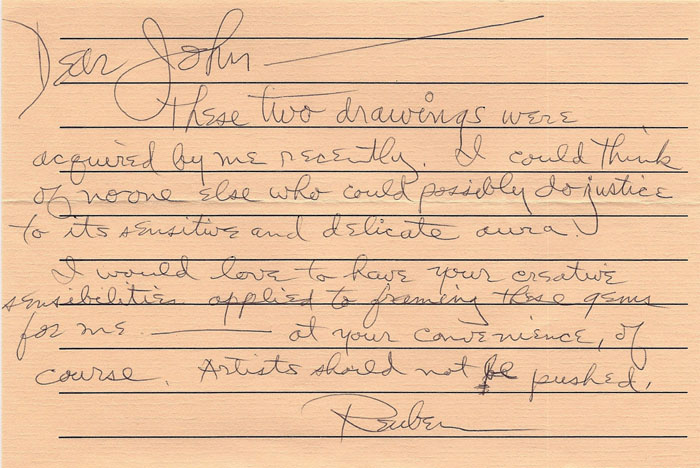 Dear John —
These two drawings were
acquired by me recently. I could think
of no one else who could possibly do justice
to its sensitive and delicate aura.
I would love to have your creative
sensibilities applied to framing these gems
for me ——— at your convenience, of
course. Artists should not be pushed.
Reuben